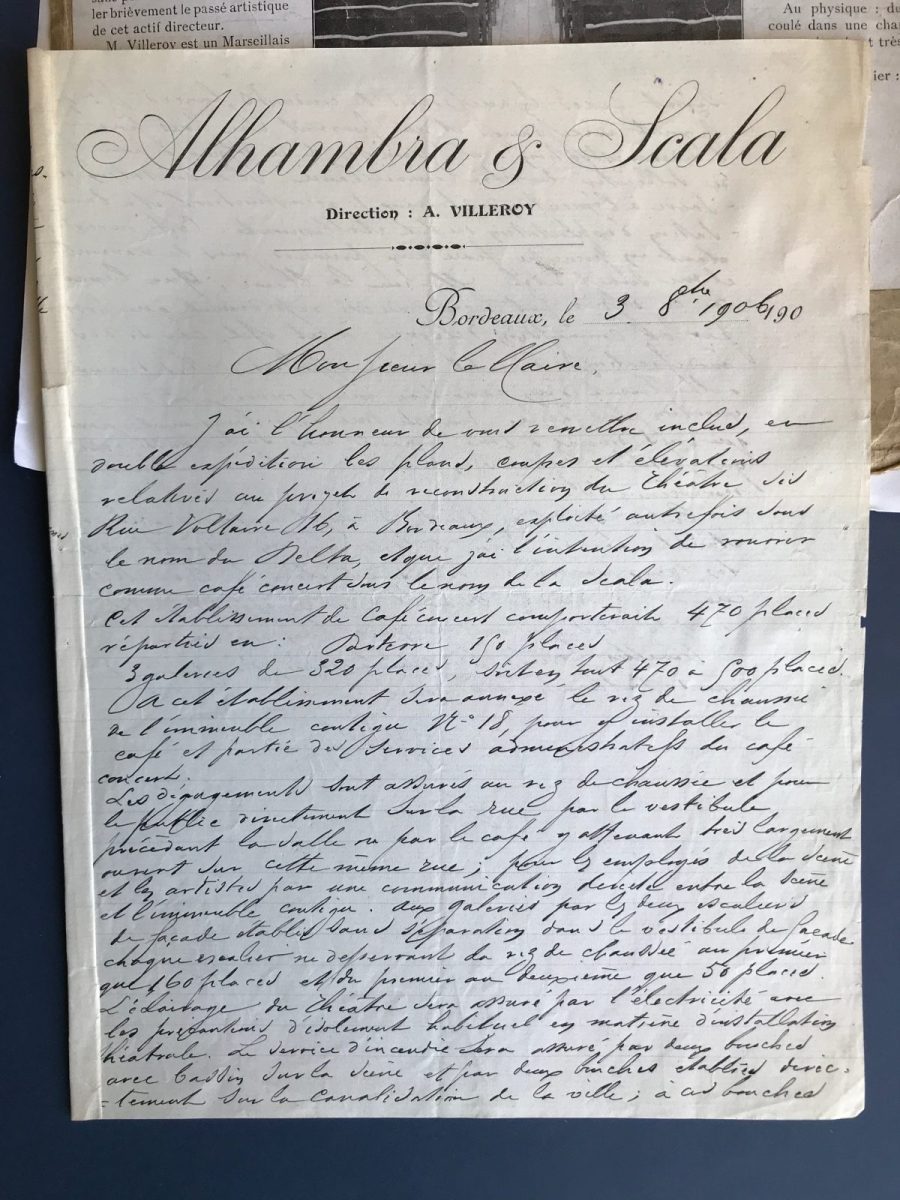 ler brièvement le passé artistique
de cet actif directeur.
M. Villeroy est un Marseillais
Au physique : du
coulé dans une cha
très
ier :
Alhambra & Scala
Direction : A. VILLEROY
Bordeaux, le 3 8bre 1906 190
Monsieur le Maire,
J'ai l'honneur de vous remettre inclus, en
double expédition les plans, coupes et élévations
relatives au projet de reconstruction du Théâtre sis
Rue Voltaire 16, à Bordeaux, exploité autrefois sous
le nom du Delta, et que j'ai l'intention de rouvrir
comme café concert sous le nom de la Scala.
Cet établissement de Café concert comporterait 470 places
réparties en : Parterre 150 places
3 galeries de 320 places, soit en tout 470 à 500 places.
A cet établissement sera annexé le rez de chaussée
de l'immeuble contigu N° 18, pour y installer le
café et partie des Services administratifs du café
concert.
Les dégagements sont assurés au rez de chaussée et pour
le public directement sur la rue par le vestibule
précédant la salle ou par le café y attenant très largement
ouvert sur cette même rue ; pour les employés de la scène
et les artistes par une communication directe entre la scène
et l'immeuble contigu. aux galeries par les deux escaliers
de façade établis sans séparation dans le vestibule de façade
chaque escalier ne desservant du rez de chaussée au premier
que 160 places et du premier au deuxième que 50 places.
L'éclairage du théâtre sera assuré par l'électricité avec
les précautions d'isolement habituel en matière d'installation
théatrale. Le service d'incendie sera assuré par deux bouches
avec bassin sur la scène et par deux bouches établies direc-
-tement sur la canalisation de la ville ; à ces bouches